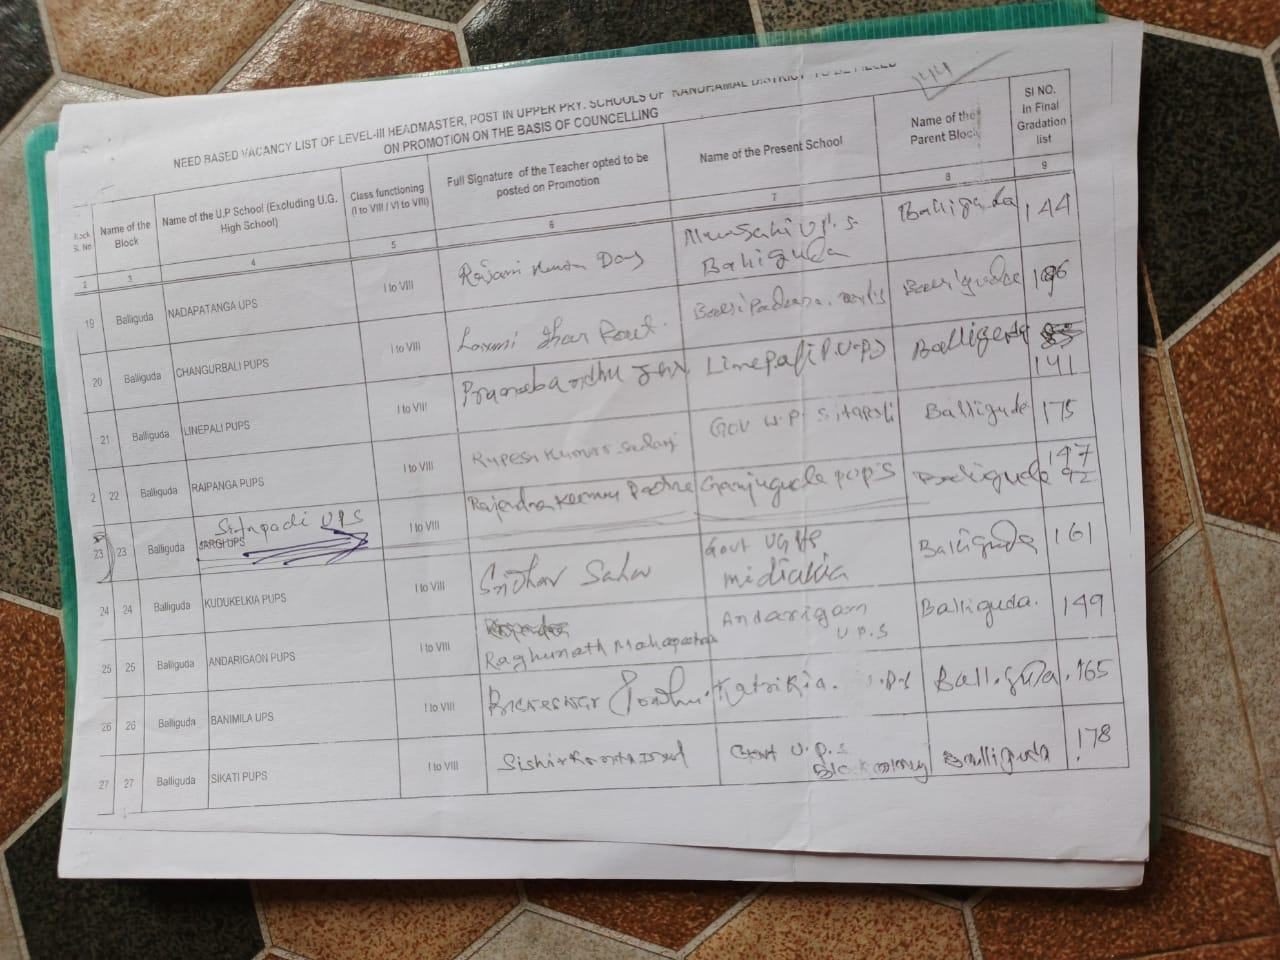 144
NEED BASED VACANCY LIST OF LEVEL-III HEADMASTER, POST IN UPPER PRY. SCHOOLS OF KANDHAMAL DISTRICT TO BE FILLED
ON PROMOTION ON THE BASIS OF COUNCELLING
Sl. No Name of the Block Name of the U.P School (Excluding U.G. High School) Class functioning (I to VIII / VI to VIII) Full Signature of the Teacher opted to be posted on Promotion Name of the Present School Name of the Parent Block Sl NO. in Final Gradation list
2 3 4 5 6 7 8 9
19 Balliguda NADAPATANGA UPS I to VIII Rajani Kanta Das U.P.S Balliguda Balliguda 144
20 Balliguda CHANGURBALI PUPS I to VIII Laxmi dhar Rout Balliguda 196
21 Balliguda LINEPALI PUPS I to VIII Linepali P.U.P.S Balliguda 141
2 22 Balliguda RAIPANGA PUPS I to VIII Rupesh Kumar Gov U.P.S Balliguda 175
23 23 Balliguda SARGI UPS Sitapadi UPS I to VIII Rajendra Kumar Ganjuguda PUPS Balliguda 147 92
24 24 Balliguda KUDUKELKIA PUPS I to VIII Sridhar Sahu Govt UGHS midiakia Balliguda 161
25 25 Balliguda ANDARIGAON PUPS I to VIII Raghunath Mahapatra Andarigam U.P.S Balliguda. 149
26 26 Balliguda BANIMILA UPS I to VIII Katrikia. Balliguda. 165
27 27 Balliguda SIKATI PUPS I to VIII Govt U.P.S Balliguda 178